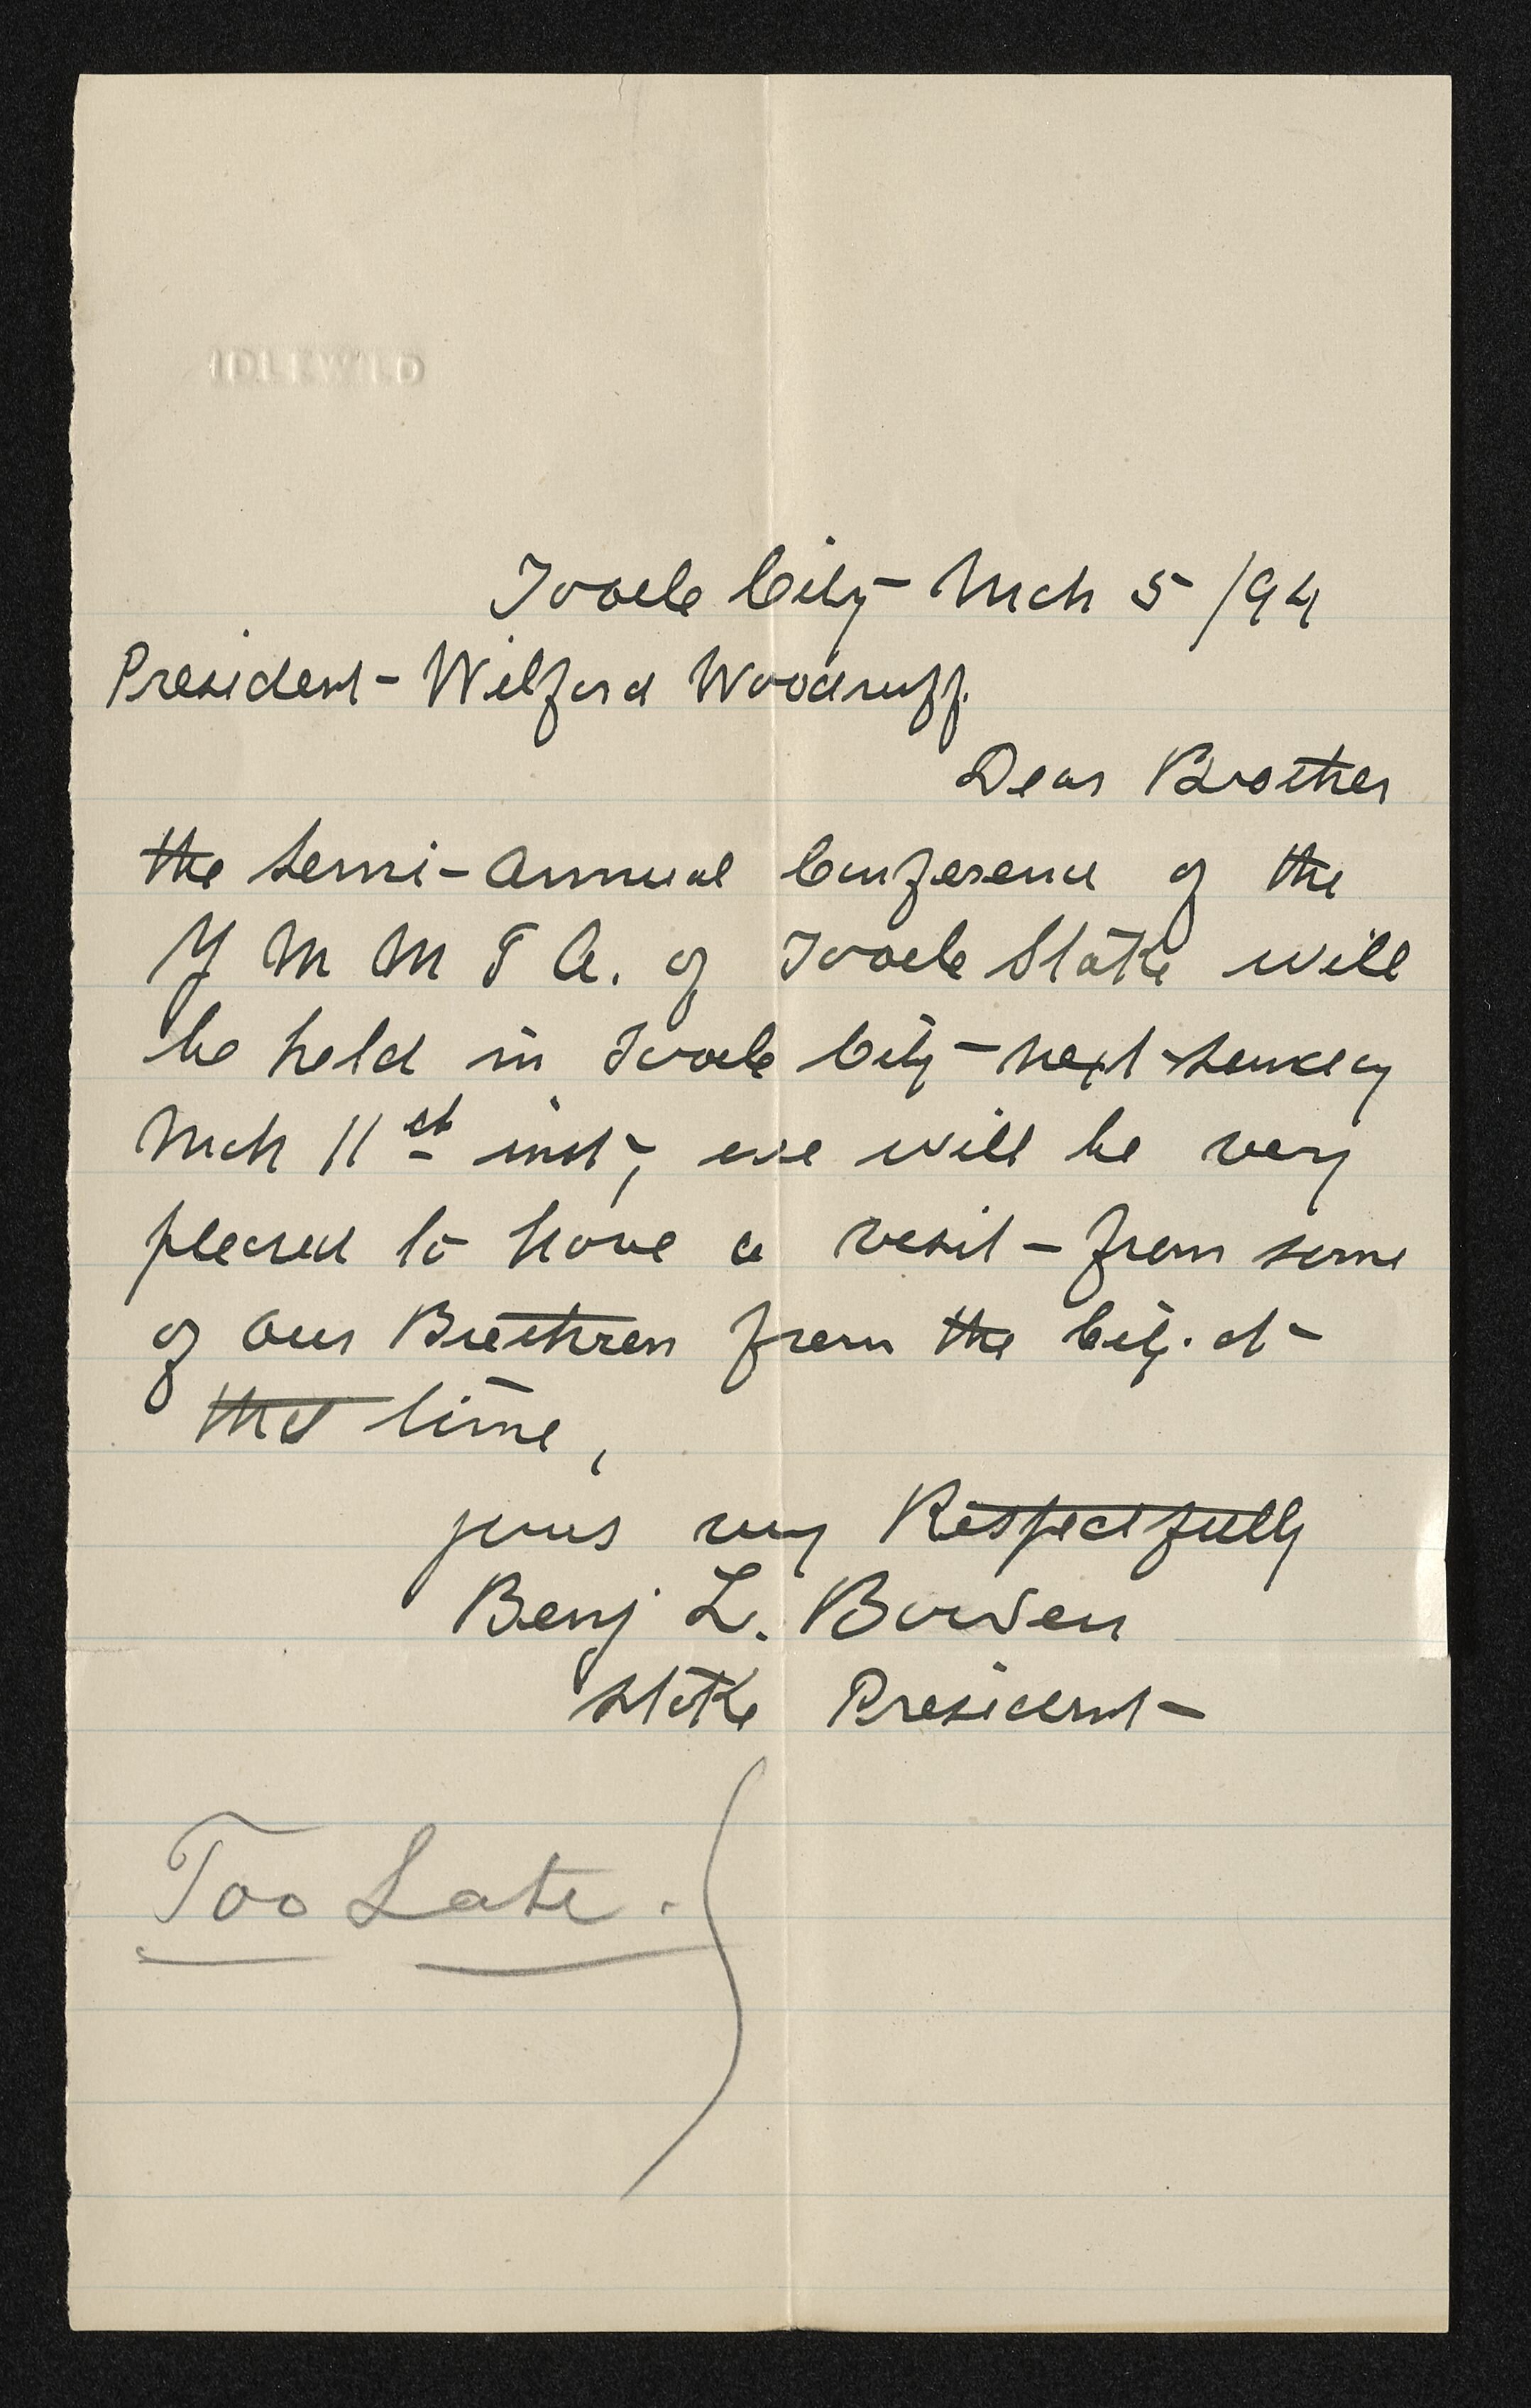 IDLEWILD
Tooele City Mch 5 /94
President Wilford Woodruff.
Dear Brother
the semi-Annual Conference of the
Y M M I A. of Tooele Stake will
be held in Tooele City next sunday
Mch 11st inst, we will be very
pleased to have a visit from some
of our Brethren from the City. at
that time,
yours very Respectfully
Benj L. Bowen
stake President
Too Late.